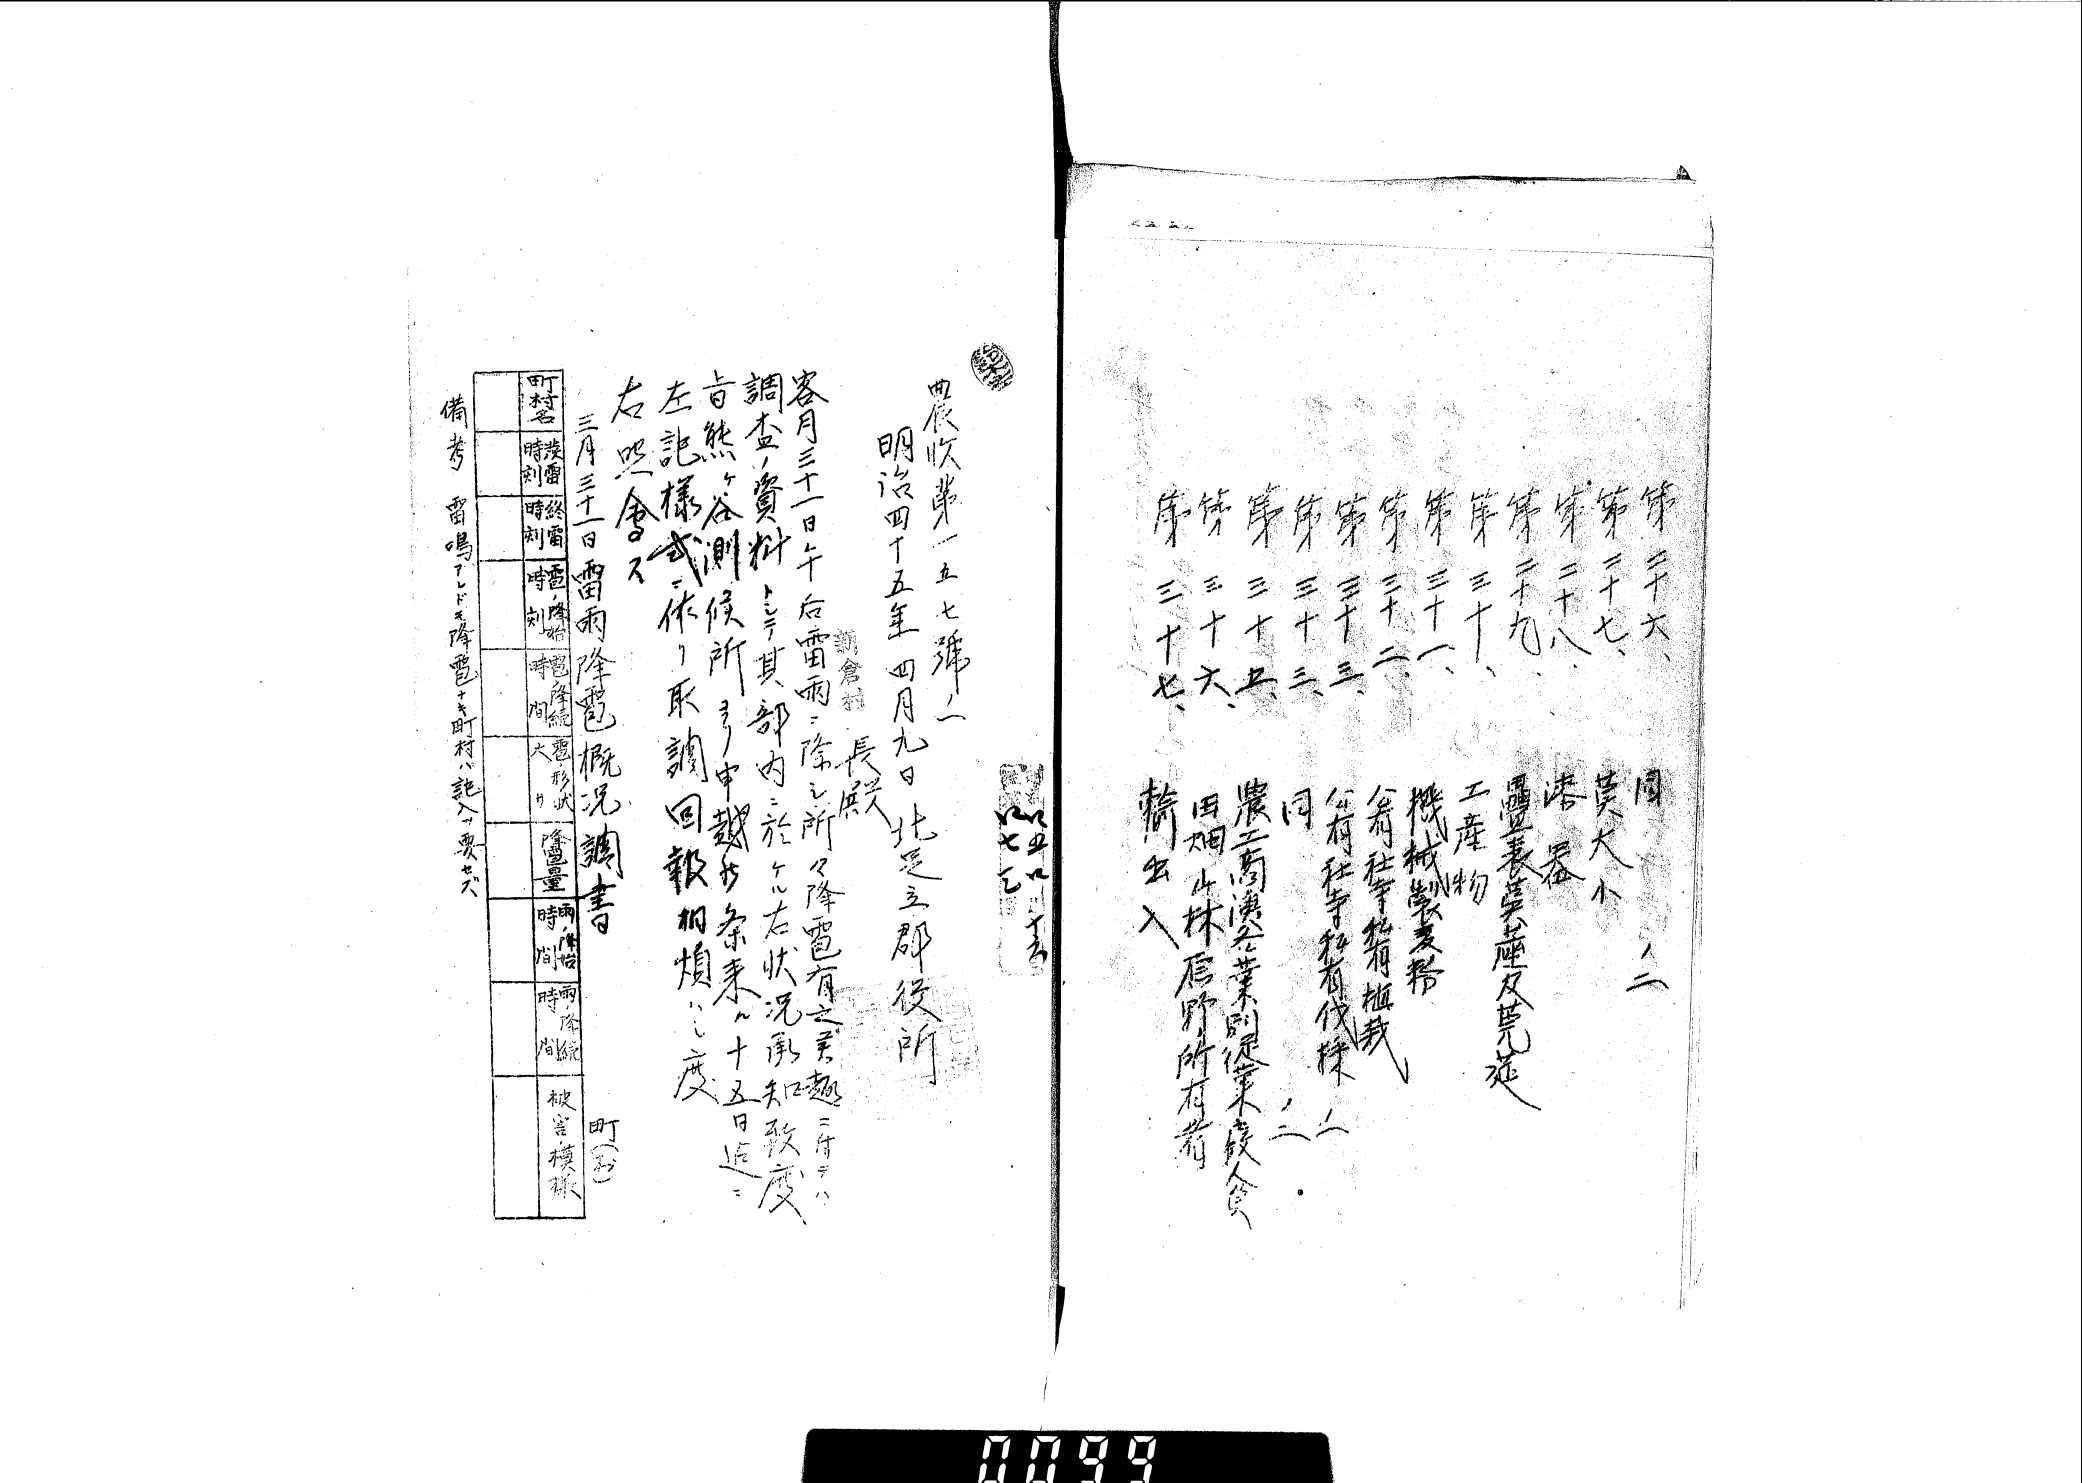 第二十六、 同 ノ二
第二十七、 莫大小
第二十八、 漆器
第二十九、 疊表莫蓙及莞莚
第三十、 工産物
第三十一、 機械製麦粉
第三十二、 公有社寺私有植栽
第三十三、 公有社寺私有伐採 ノ一
第三十三、 同 ノ二
第三十五、 農工商漁各業別従業戸数人員
第三十六、 田畑山林原野所有者
第三十七、 輸出入
農收第一五七號ノ一
明治四十五年四月九日 北足立郡役所
新倉村長殿
客月三十一日午后雷雨ニ際シ所々降雹有之候趣ニ付テハ
調査ノ資料トシテ其部内ニ於ケル右状况承知致度
旨熊ヶ谷測候所ヨリ申越候条来ル十五日迠ニ
左記様式ニ依リ取調回報相煩ハシ度
右照會ス
三月三十一日雷雨降雹概况調書
町(村)
町村名
発雷時刻
終雷時刻
雹ノ降始時刻
雹ノ降続時間
雹ノ形状大サ
降雹量
雨ノ降始時間
雨ノ降続時間
被害ノ模様
備考 雷鳴アレドモ降雹ナキ町村ハ記入ヲ要セズ
0099